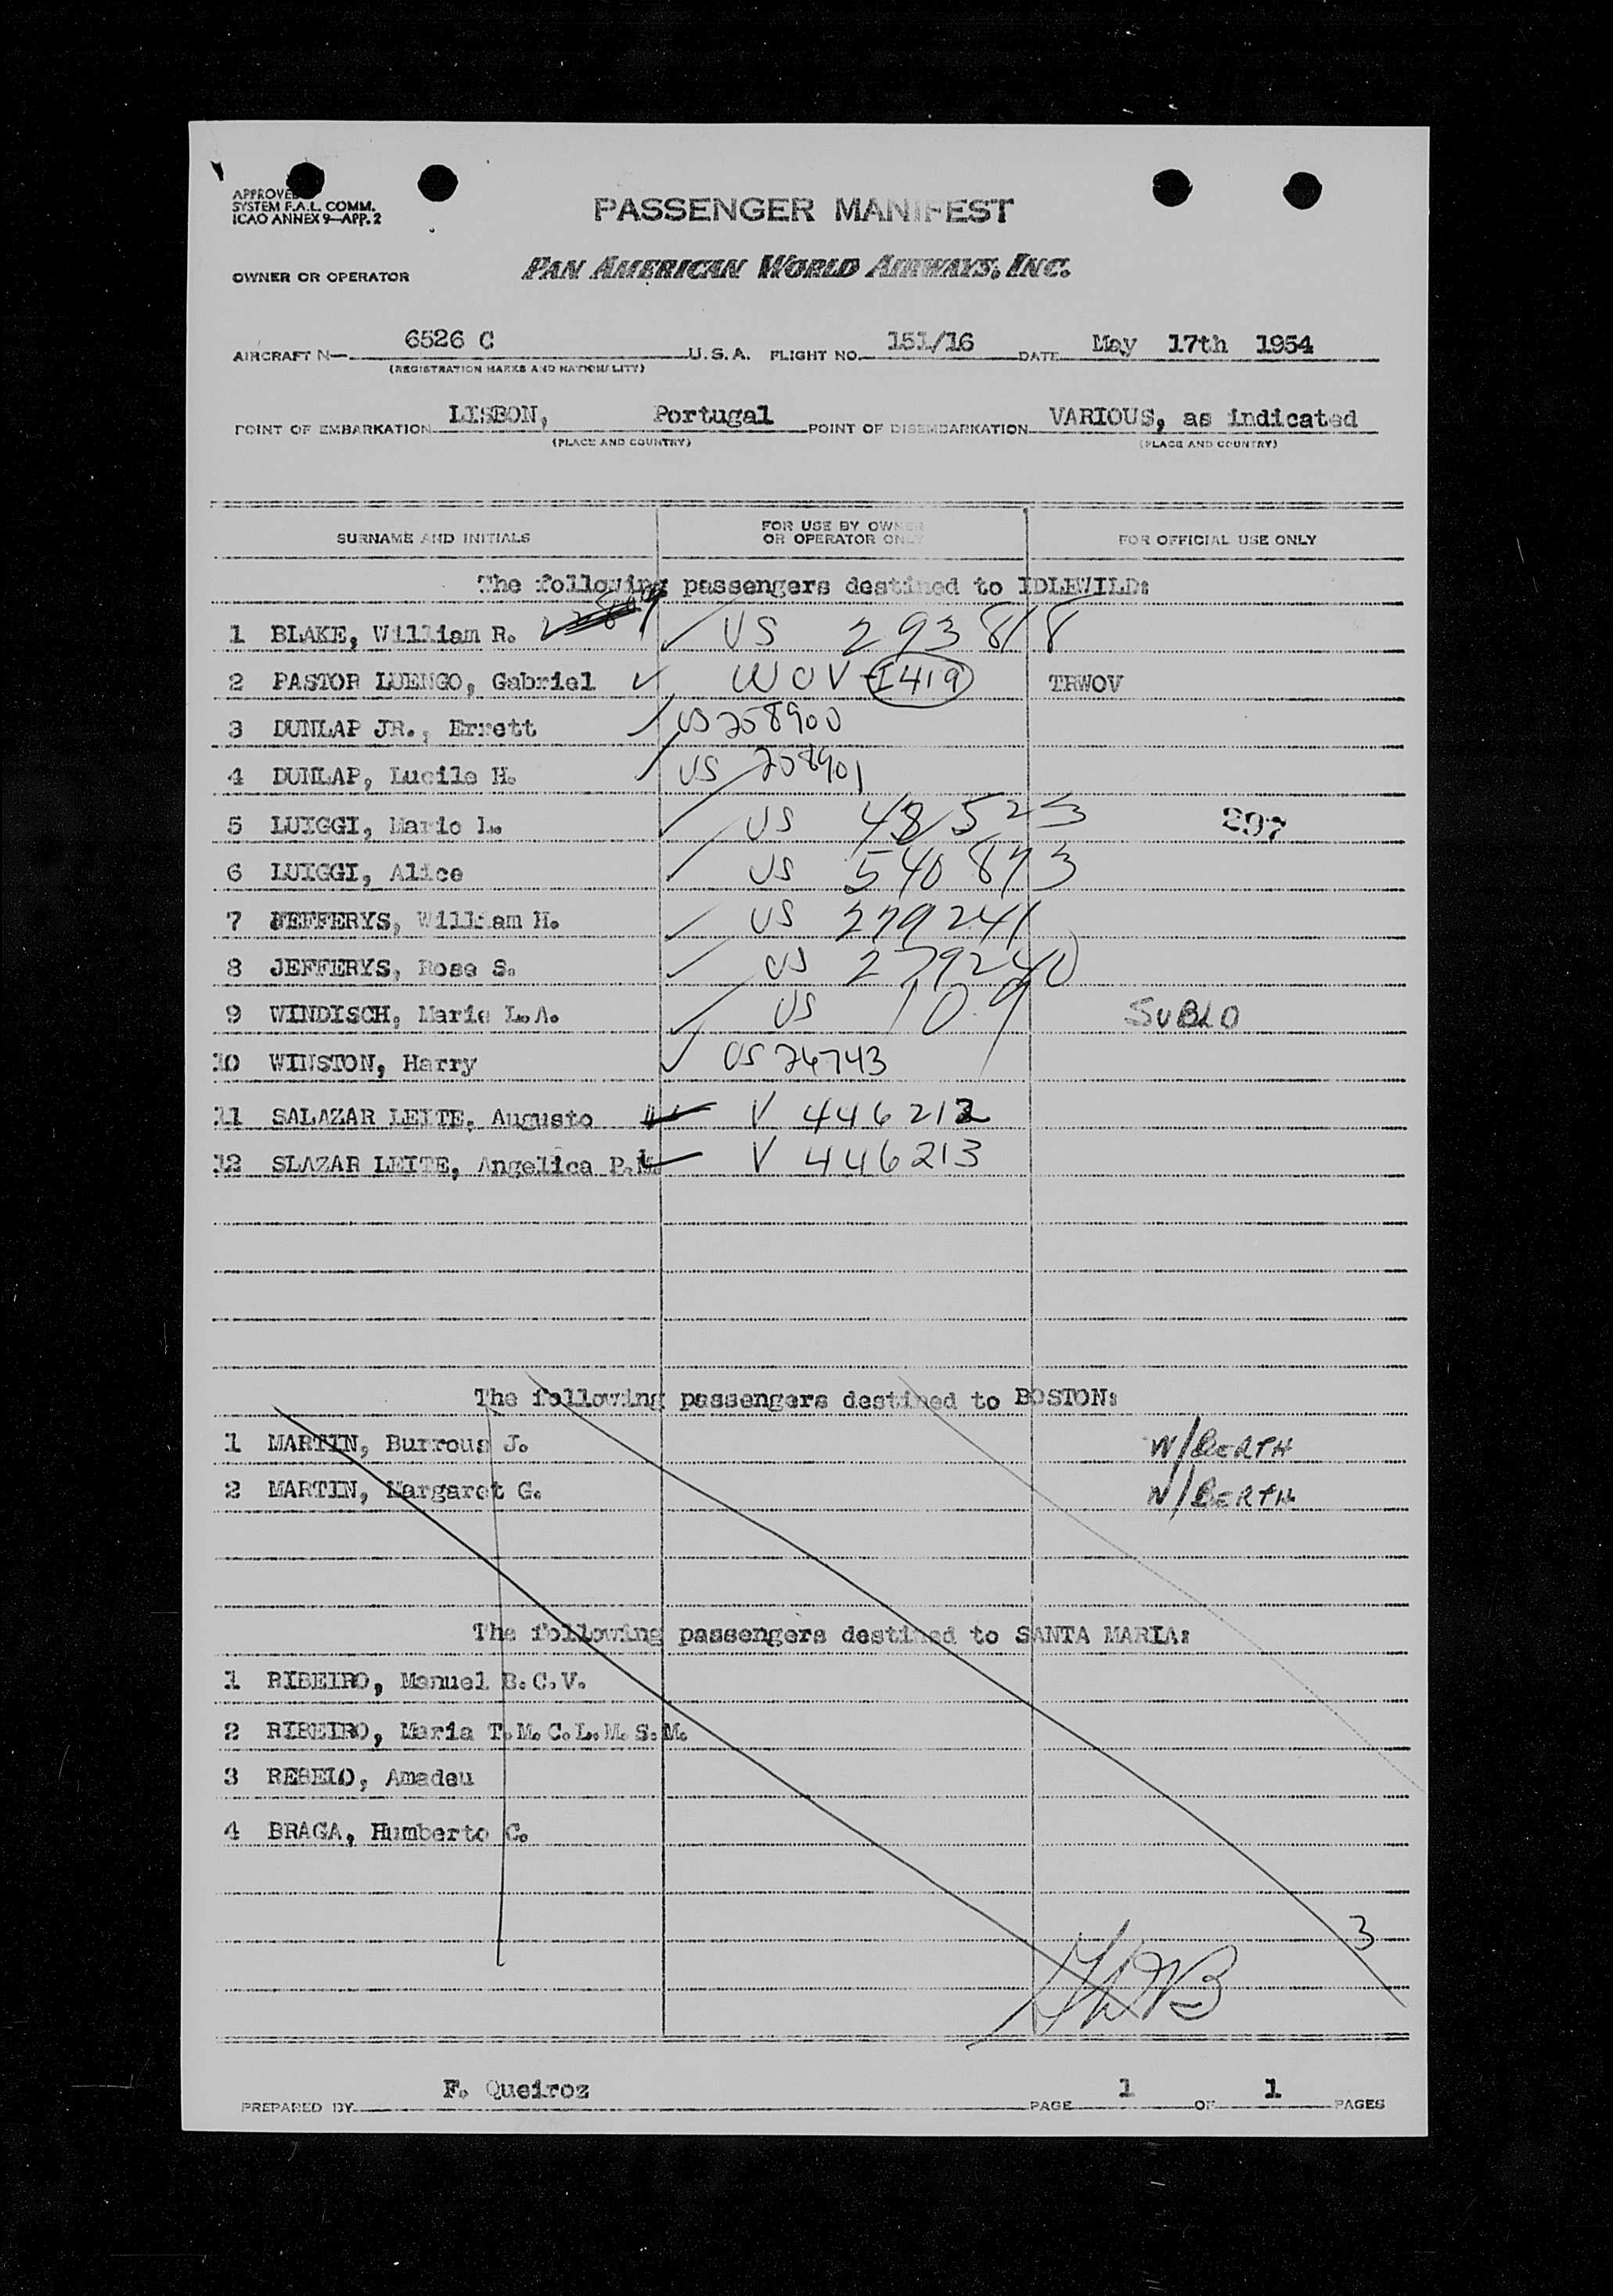 APPROVED
SYSTEM F.A.L. COMM.
ICAO ANNEX 9—APP. 2
PASSENGER MANIFEST
OWNER OR OPERATOR PAN AMERICAN WORLD AIRWAYS, INC.
AIRCRAFT N— 6526 C U. S. A. FLIGHT NO. 151/16 DATE May 17th 1954
(REGISTRATION MARKS AND NATIONALITY)
POINT OF EMBARKATION LISBON, Portugal POINT OF DISEMBARKATION VARIOUS, as indicated
(PLACE AND COUNTRY) (PLACE AND COUNTRY)
SURNAME AND INITIALS FOR USE BY OWNER OR OPERATOR ONLY FOR OFFICIAL USE ONLY
The following passengers destined to IDLEWILD:
1 BLAKE, William R. US 293818
2 PASTOR LUENGO, Gabriel WOV-I419 TRWOV
3 DUNLAP JR., Errett US 258900
4 DUNLAP, Lucile H. US 258901
5 LUIGGI, Mario L. US 48523 297
6 LUIGGI, Alice US 540873
7 JEFFERYS, William H. US 279241
8 JEFFERYS, Rose S. US 279240
9 WINDISCH, Marie L.A. US 109 SUBLO
10 WINSTON, Harry US 26743
11 SALAZAR LEITE, Augusto V 446212
12 SLAZAR LEITE, Angelica P.M. V 446213
The following passengers destined to BOSTON:
1 MARTIN, Burrous J. W/BERTH
2 MARTIN, Margaret G. W/BERTH
The following passengers destined to SANTA MARIA:
1 RIBEIRO, Manuel B.C.V.
2 RIBEIRO, Maria T.M.C.L.M.S.M.
3 REBELO, Amadeu
4 BRAGA, Humberto C.
3
PREPARED BY F. Queiroz PAGE 1 OF 1 PAGES